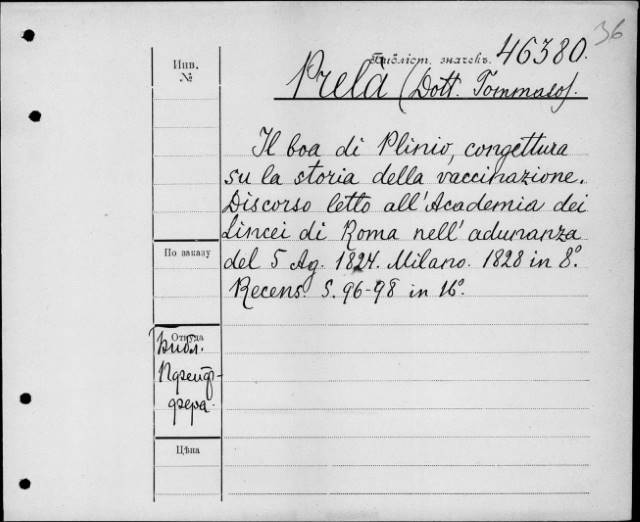 36
Инв.
№
Библіот. значекъ. 46380.
Prelà (Dott. Tommaso).
Il boa di Plinio, congettura
su la storia della vaccinazione.
Discorso letto all'Academia dei
Lincei di Roma nell'adunanza
del 5 Ag. 1824. Milano. 1828 in 8°.
Recens. S. 96-98 in 16°.
По заказу
Откуда
Библ.
Пфейф-
фера.
Цѣна